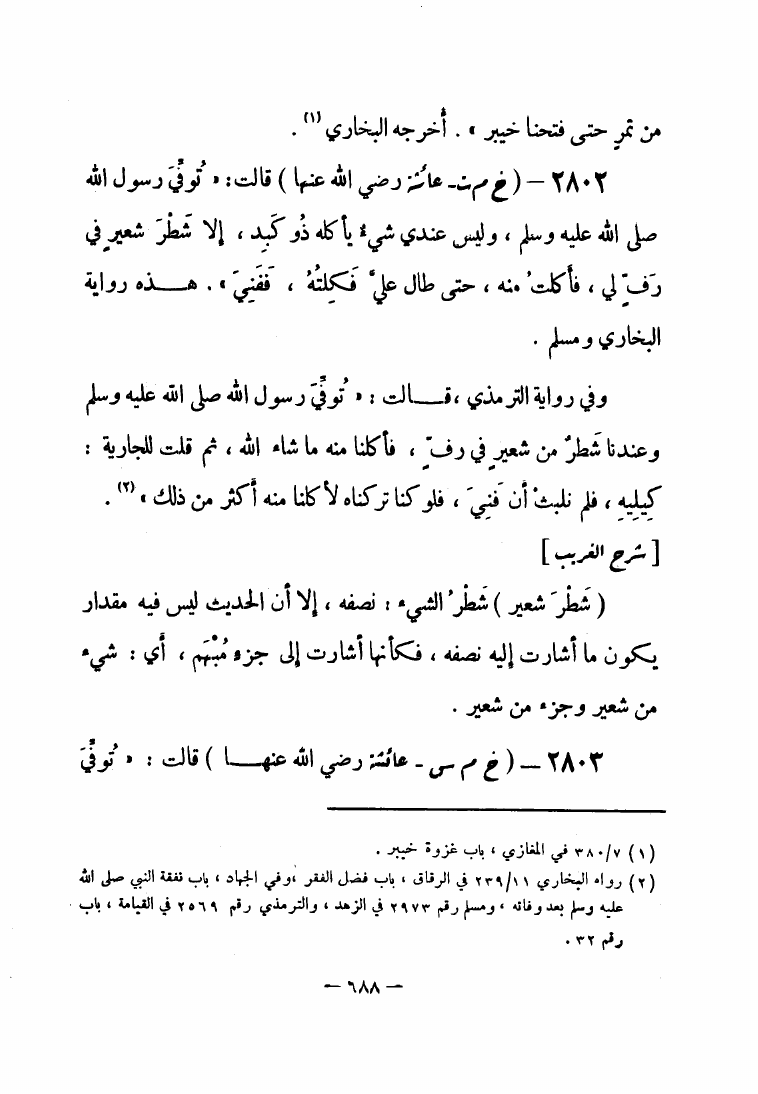 من تمرٍ حتى فتحنا خيبر » . أخرجه البخاري (١) .
٢٨٠٢ – ( خ م ت - عائشة رضي الله عنها ) قالت : « تُوفِّيَ رسول الله
صلى الله عليه وسلم ، وليس عندي شيءٌ يأكله ذُو كَبِدٍ ، إلا شَطْرَ شعيرٍ في
رَفٍّ لي ، فأكلتُ منه ، حتى طال عليَّ فَكِلتُهُ ، فَفَنِيَ » . هـــذه رواية
البخاري ومسلم .
وفي رواية الترمذي ، قـــالت : « تُوفِّيَ رسول الله صلى الله عليه وسلم
وعندنا شَطرٌ من شعيرٍ في رفٍّ ، فأكلنا منه ما شاء الله ، ثم قلت للجارية :
كِيلِيهِ ، فلم نلبثْ أن فَنِيَ ، فلو كنا تركناه لأكلنا منه أكثر من ذلك » (٢) .
[ شرح الغريب ]
( شَطْرَ شعير ) شَطْرُ الشيء : نصفه ، إلا أن الحديث ليس فيه مقدار
يكون ما أشارت إليه نصفه ، فكأنها أشارت إلى جزءٍ مُبْهَم ، أي : شيء
من شعير وجزء من شعير .
٢٨٠٣ – ( خ م س - عائشة رضي الله عنهـــا ) قالت : « تُوفِّيَ
(١) ٣٨٠/٧ في المغازي ، باب غزوة خيبر .
(٢) رواه البخاري ٢٣٩/١١ في الرقاق ، باب فضل الفقر ، وفي الجهاد ، باب نفقة النبي صلى الله
عليه وسلم بعد وفاته ، ومسلم رقم ٢٩٧٣ في الزهد ، والترمذي رقم ٢٥٦٩ في القيامة ، باب
رقم ٣٢ .
– ٦٨٨ –